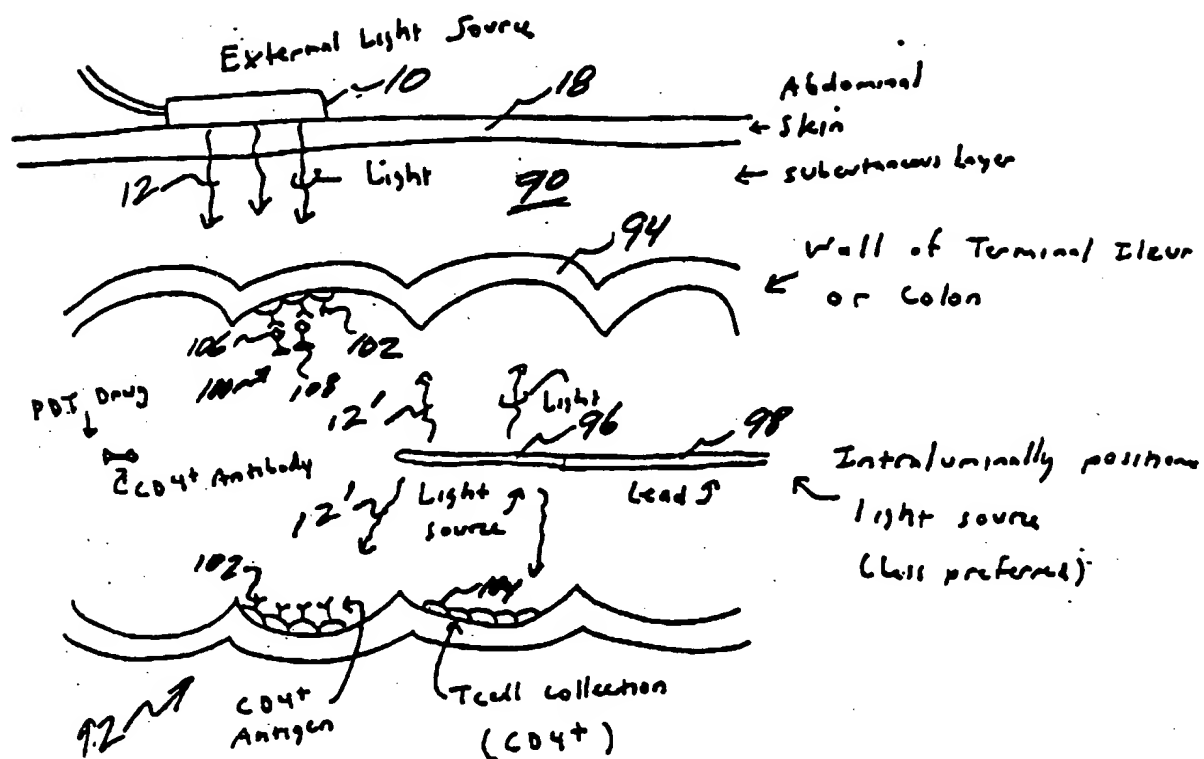 External Light Source
10
18
Abdominal
Skin
subcutaneous Layer
12
Light
90
94
Wall of Terminal Ileum
or Colon
106
102
100
108
PDT Drug
12'
Light
96
98
CD4+ Antibody
Intraluminally positione
light source
(less preferred)
12'
Light
source
Lead
102
104
CD4+
Antigen
Tcell collection
(CD4+)
92